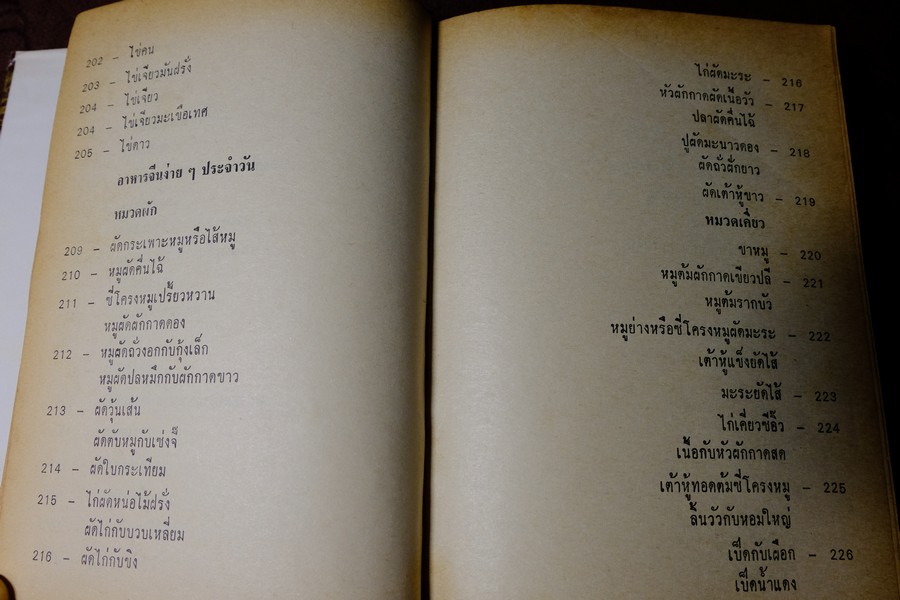 202 – ไข่คน
203 – ไข่เจียวมันฝรั่ง
204 – ไข่เจียว
204 – ไข่เจียวมะเขือเทศ
205 – ไข่ดาว
อาหารจีนง่าย ๆ ประจำวัน
หมวดผัก
209 – ผัดกระเพาะหมูหรือไส้หมู
210 – หมูผัดคื่นไฉ้
211 – ซี่โครงหมูเปรี้ยวหวาน
หมูผัดผักกาดดอง
212 – หมูผัดถั่วงอกกับกุ้งเล็ก
หมูผัดปลหมึกกับผักกาดขาว
213 – ผัดวุ้นเส้น
ผัดตับหมูกับเซ่งจี๊
214 – ผัดใบกระเทียม
215 – ไก่ผัดหน่อไม้ฝรั่ง
ผัดไก่กับบวบเหลี่ยม
216 – ผัดไก่กับขิง
ไก่ผัดมะระ – 216
หัวผักกาดผัดเนื้อวัว – 217
ปลาผัดคื่นไฉ้
ปูผัดมะนาวดอง – 218
ผัดถั่วฝักยาว
ผัดเต้าหู้ขาว – 219
หมวดเคี่ยว
ขาหมู – 220
หมูต้มผักกาดเขียวปลี – 221
หมูต้มรากบัว
หมูย่างหรือซี่โครงหมูผัดมะระ – 222
เต้าหู้แข็งยัดไส้
มะระยัดไส้ – 223
ไก่เคี่ยวซีอิ๊ว – 224
เนื้อกับหัวผักกาดสด
เต้าหู้ทอดต้มซี่โครงหมู – 225
ลิ้นวัวกับหอมใหญ่
เป็ดกับเผือก – 226
เป็ดน้ำแดง